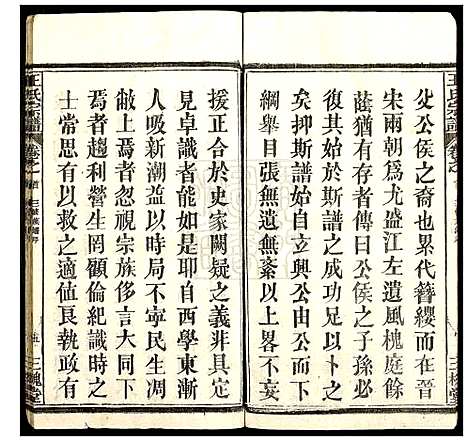 父公侯之裔也累代簪纓而在晉
宋兩朝爲尤盛江左遺風槐庭餘
蔭猶有存者傳曰公侯之子孫必
復其始於斯譜之成功足以卜之
矣抑斯譜自立興公由公而下
綱舉目張無遺無紊以上畧不
援正合於史家闕疑之義非具定
見卓識者能如是耶自西學東漸
人吸新潮政益不寧而民生凋
敝上焉者侈言大同下
焉者趨利營生罔顧倫紀識時之
士常思有以救之適値長執政有
王氏宗譜
卷之一
三槐堂
王氏宗譜
三槐堂